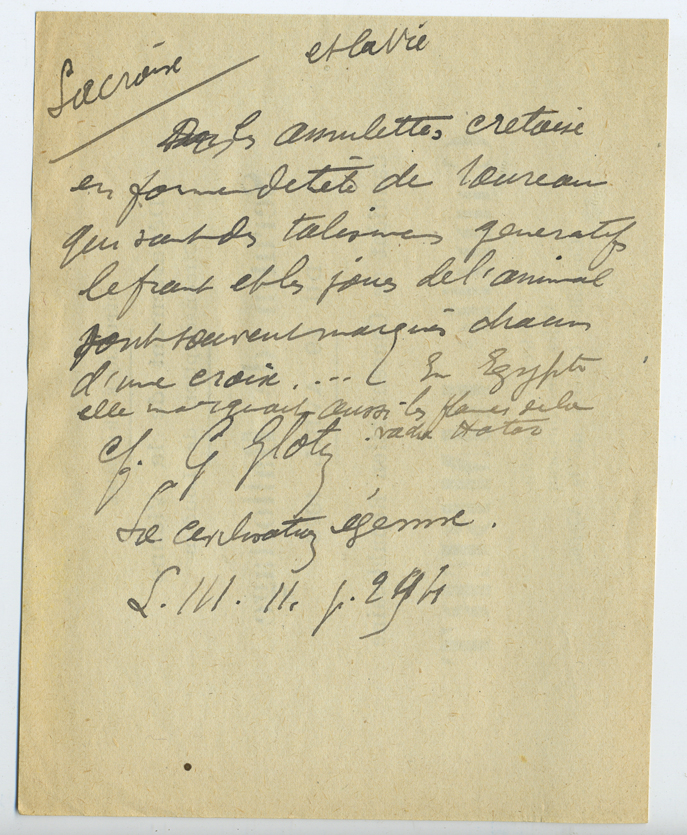 La croix et la Vie
Les amulettes cretoise
en forme de tête de taureau
qui sont des talismans generatifs
le front et les joues de l'animal
sont souvent marqués chacun
d'une croix .... En Egypte
elle marquait aussi les flancs de la
vache Hator
cf. G Glotz
La civilisation égenne.
L. III. II. p. 294